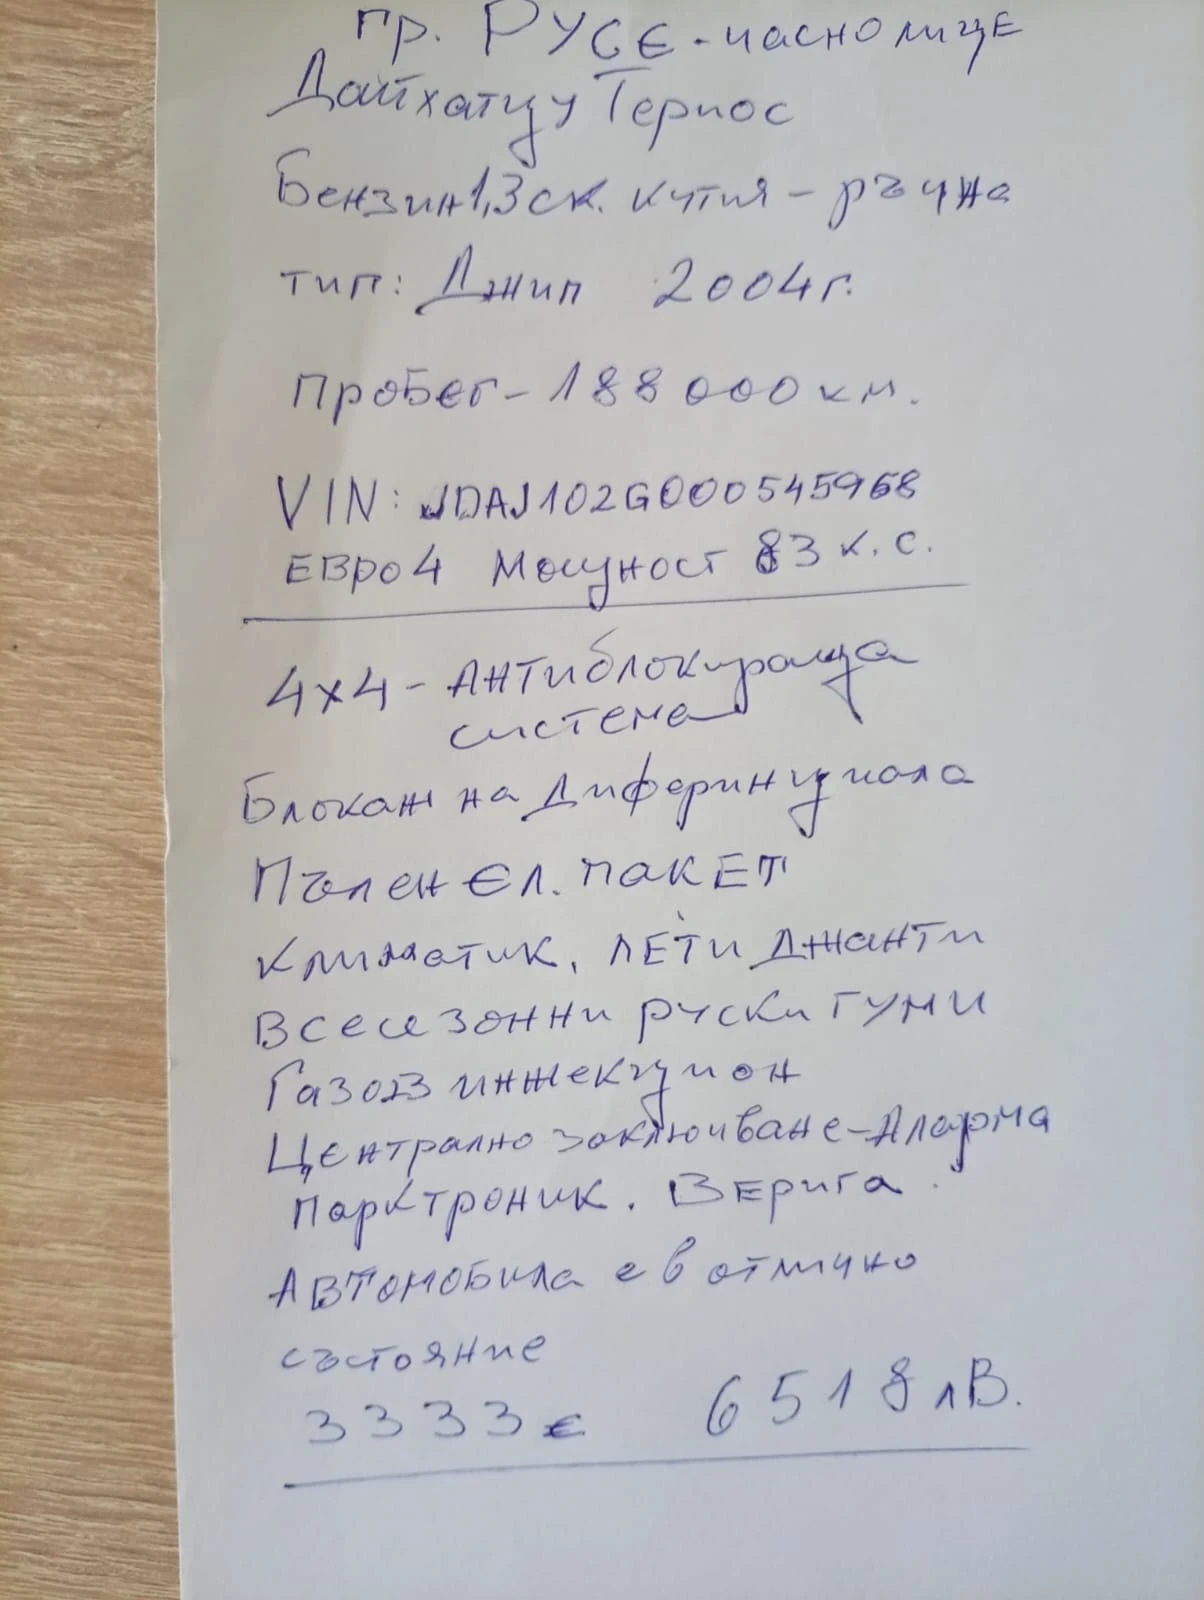 гр. РУСЕ - частно лице
Дайхатцу Териос
Бензин 1,3 ск. кутия - ръчна
тип: Джип 2004г.
Пробег - 188 000 км.
VIN: JDAJ102G000545968
ЕВРО 4 Мощност 83 к.с.
4x4 - Антиблокираща
система
Блокаж на Диферинциала
Пълен Ел. пакет
климатик, ЛЕТИ Джанти
Всесезонни руски гуми
Газов инжекцион
Централно заключване - Аларма
парктроник. Верига.
Автомобила е в отлично
състояние
3333€ 6518 лв.